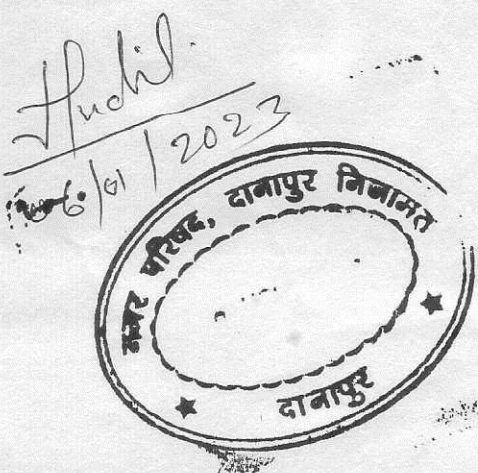 06/01/2023
नगर परिषद, दानापुर निजामत
दानापुर